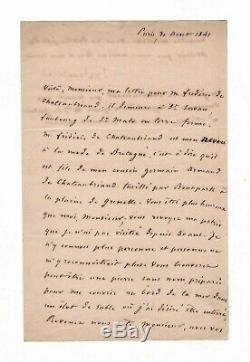 Paris 30 août 1841
Voilà, Monsieur, ma lettre pour M. frédéric de
Chateaubriand. il demeure à St. Servan
faubourg de St. Malo en terre ferme.
M. frédéric de Chateaubriand est mon neveu
à la mode de Bretagne, c'est à dire qu'il
est fils de mon cousin germain Armand
de Chateaubriand fusillé par Bonaparte à
la plaine de Grenelle. Vous êtes plus heureux
que moi, Monsieur, vous revoyez ma patrie
que je n'ai pas visitée depuis 30 ans. Je
n'y connais plus personne et personne ne
m'y reconnaîtrait plus. Vous trouverez
peut-être une pierre sans nom préparée
pour me couvrir au bord de la mer dans
un îlot de sable où j'ai désiré être enterré.
Revenez nous, Monsieur, avec vos